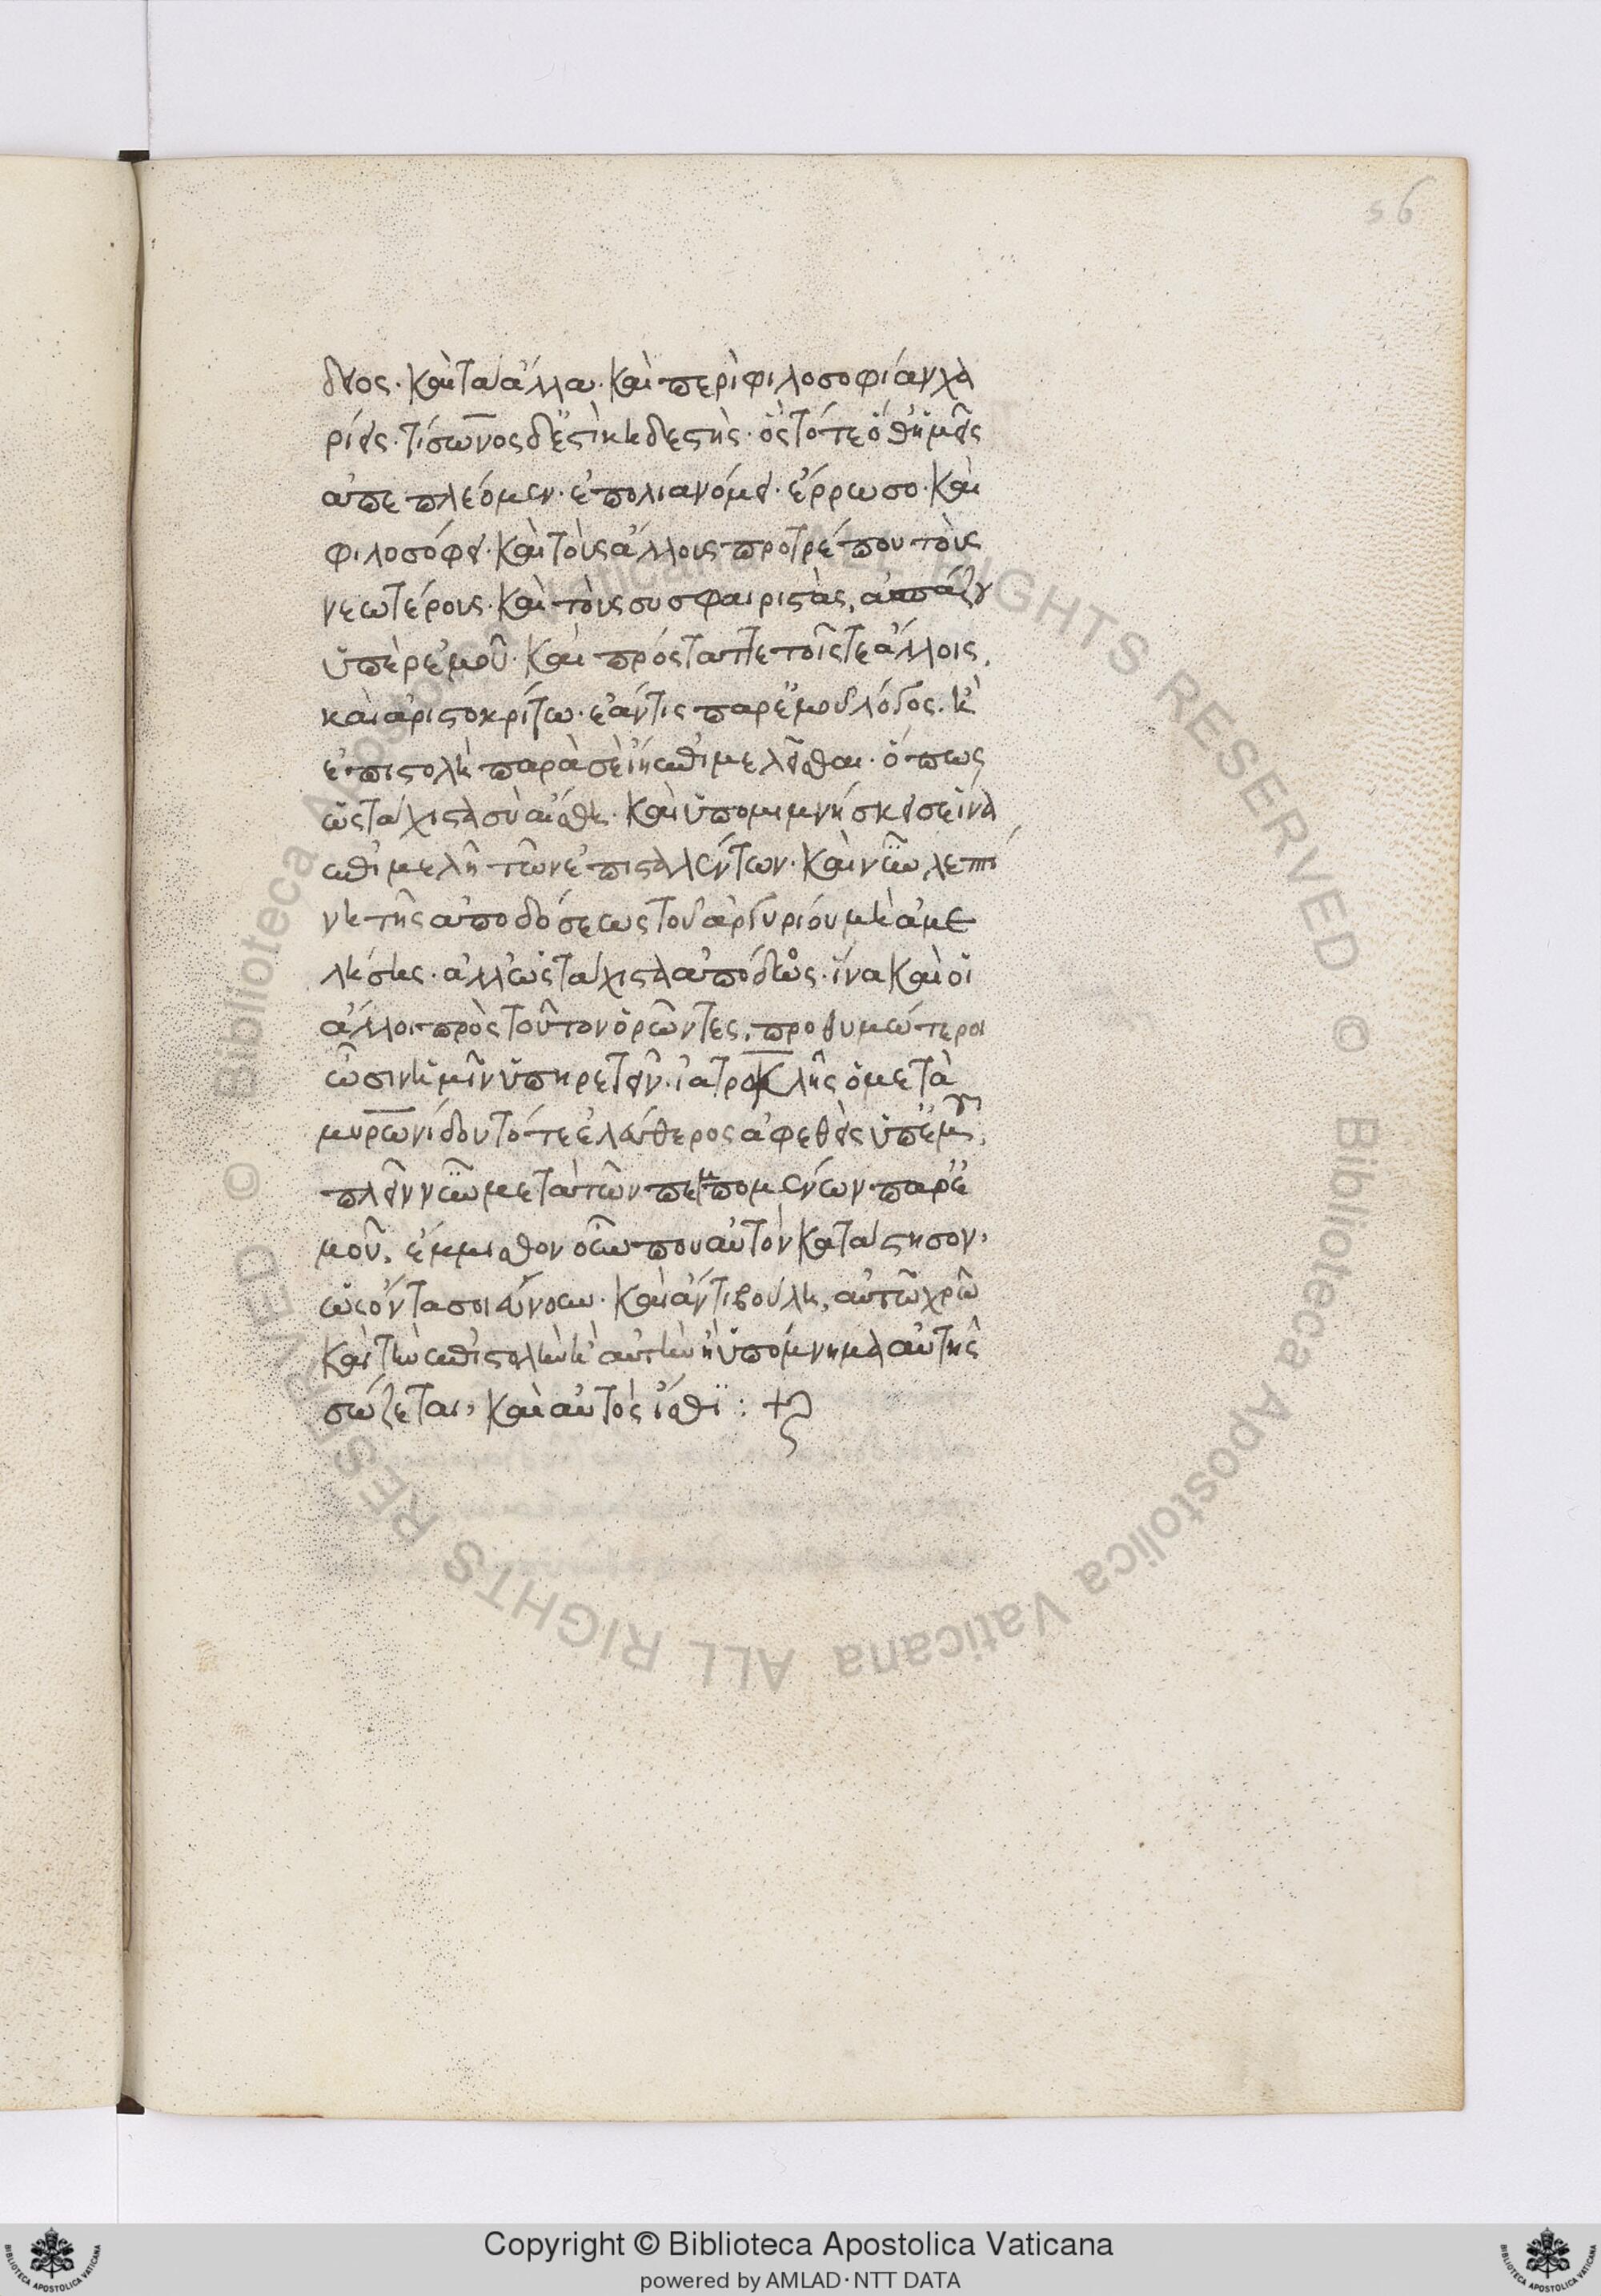 56
δειος. καὶ τὰ ἄλλα. καὶ περὶ φιλοσοφίαν χα
ρίεις. τίσωνος δέ ἐστι κηδεστὴς. ὃς τότε ὅθ' ἡμεῖς
ἀπεπλέομεν. ἐπολιανόμει. ἔρρωσο. καὶ
φιλοσόφει. καὶ τοὺς ἄλλους προτρέπου τοὺς
νεωτέρους. καὶ τοὺς συσφαιριστὰς, ἀσπάζου
ὑπὲρ ἐμοῦ. καὶ πρόσταττε τοῖς τε ἄλλοις,
καὶ ἀριστοκρίτω. ἐάν τις παρ' ἐμοῦ λόγος. ἢ
ἐπιστολὴ παρὰ σὲ ἴῃ ἐπιμελεῖσθαι. ὅπως
ὡς τάχιστα σὺ αἴσθη. καὶ ὑπομιμνήσκει σε ἵνα
ἐπιμελῆ τῶν ἐπισταλέντων. καὶ νῦν λεπτί
νη τῆς ἀποδόσεως τοῦ ἀργυρίου μὴ ἀμε
λήσης. ἀλλ' ὡς τάχιστα ἀπόδος. ἵνα καὶ οἱ
ἄλλοι πρὸς τοῦτον ὁρῶντες, προθυμώτεροι
ὦσιν ἡμῖν ὑπηρετεῖν. ἰατροκλῆς ὁ μετὰ
μυρωνίδου τότε ἐλεύθερος ἀφεθεὶς ὑπ' ἐμοῦ,
πλεῖ νῦν μετὰ τῶν πεμπομένων παρ' ἐ
μοῦ, ἔμμισθον οὖν που αὐτὸν κατάστησον,
ὡς ὄντα σοι εὔνουν. καὶ ἄν τι βούλη, αὐτῶ χρῶ
καὶ τὴν ἐπιστολὴν ἢ αὐτὴν ἢ ὑπόμνημα αὐτῆς
σώζεται, καὶ αὐτὸς ἴσθι : +
Copyright © Biblioteca Apostolica Vaticana
powered by AMLAD·NTT DATA
© Biblioteca Apostolica Vaticana ALL RIGHTS RESERVED © Biblioteca Apostolica Vaticana ALL RIGHTS RESERVED
BIBLIOTECA APOSTOLICA VATICANA
BIBLIOTECA APOSTOLICA VATICANA